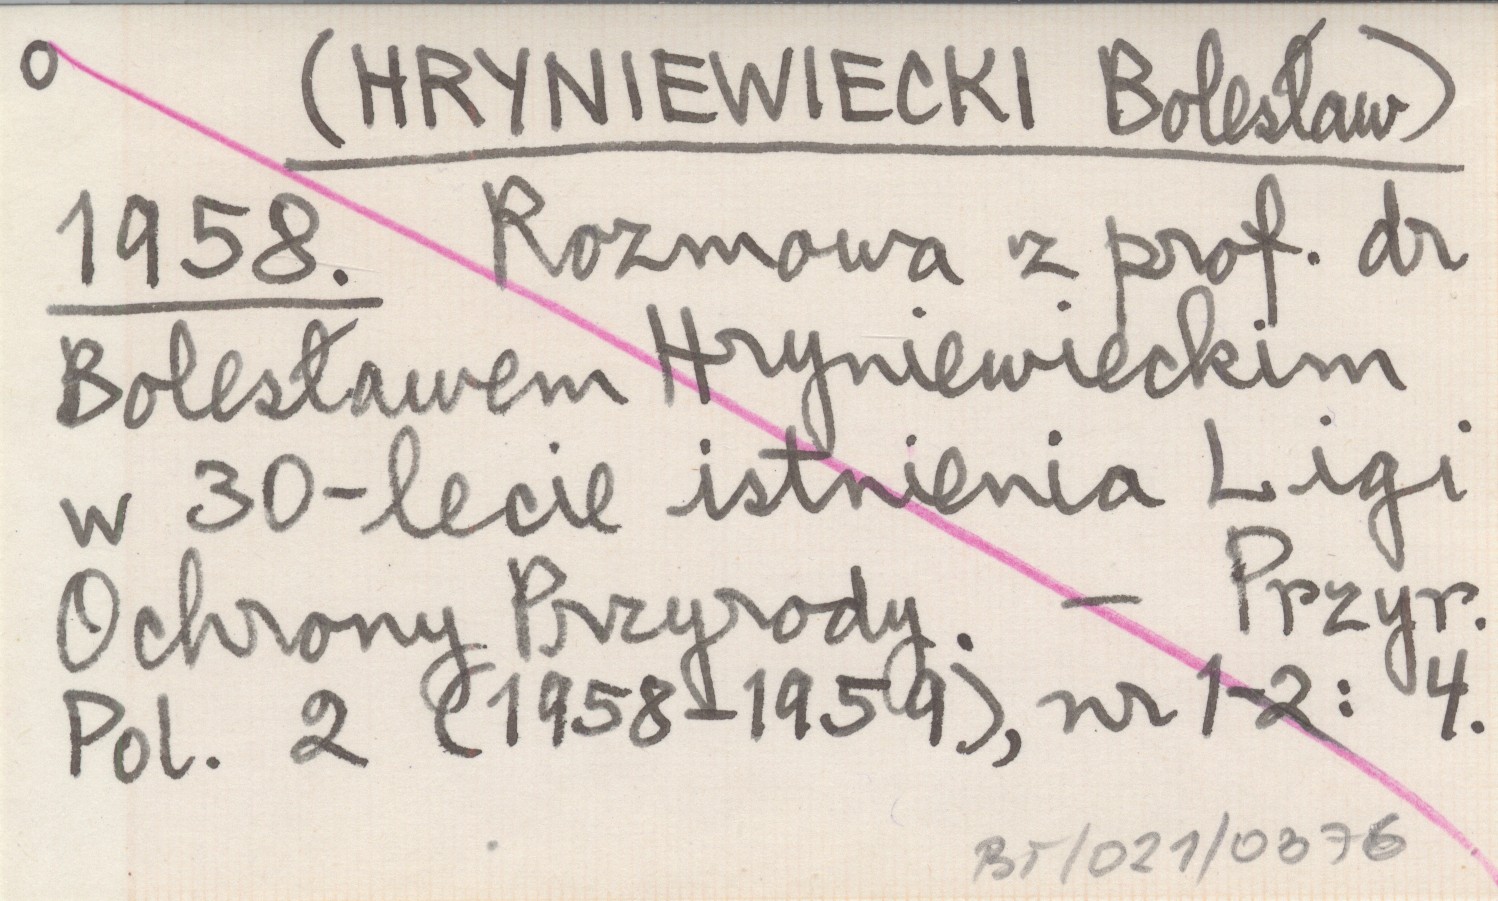 o (HRYNIEWIECKI Bolesław)
1958. Rozmowa z prof. dr
Bolesławem Hryniewieckim
w 30-lecie istnienia Ligi
Ochrony Przyrody. – Przyr.
Pol. 2 (1958-1959), nr 1-2: 4.
BT/021/0376